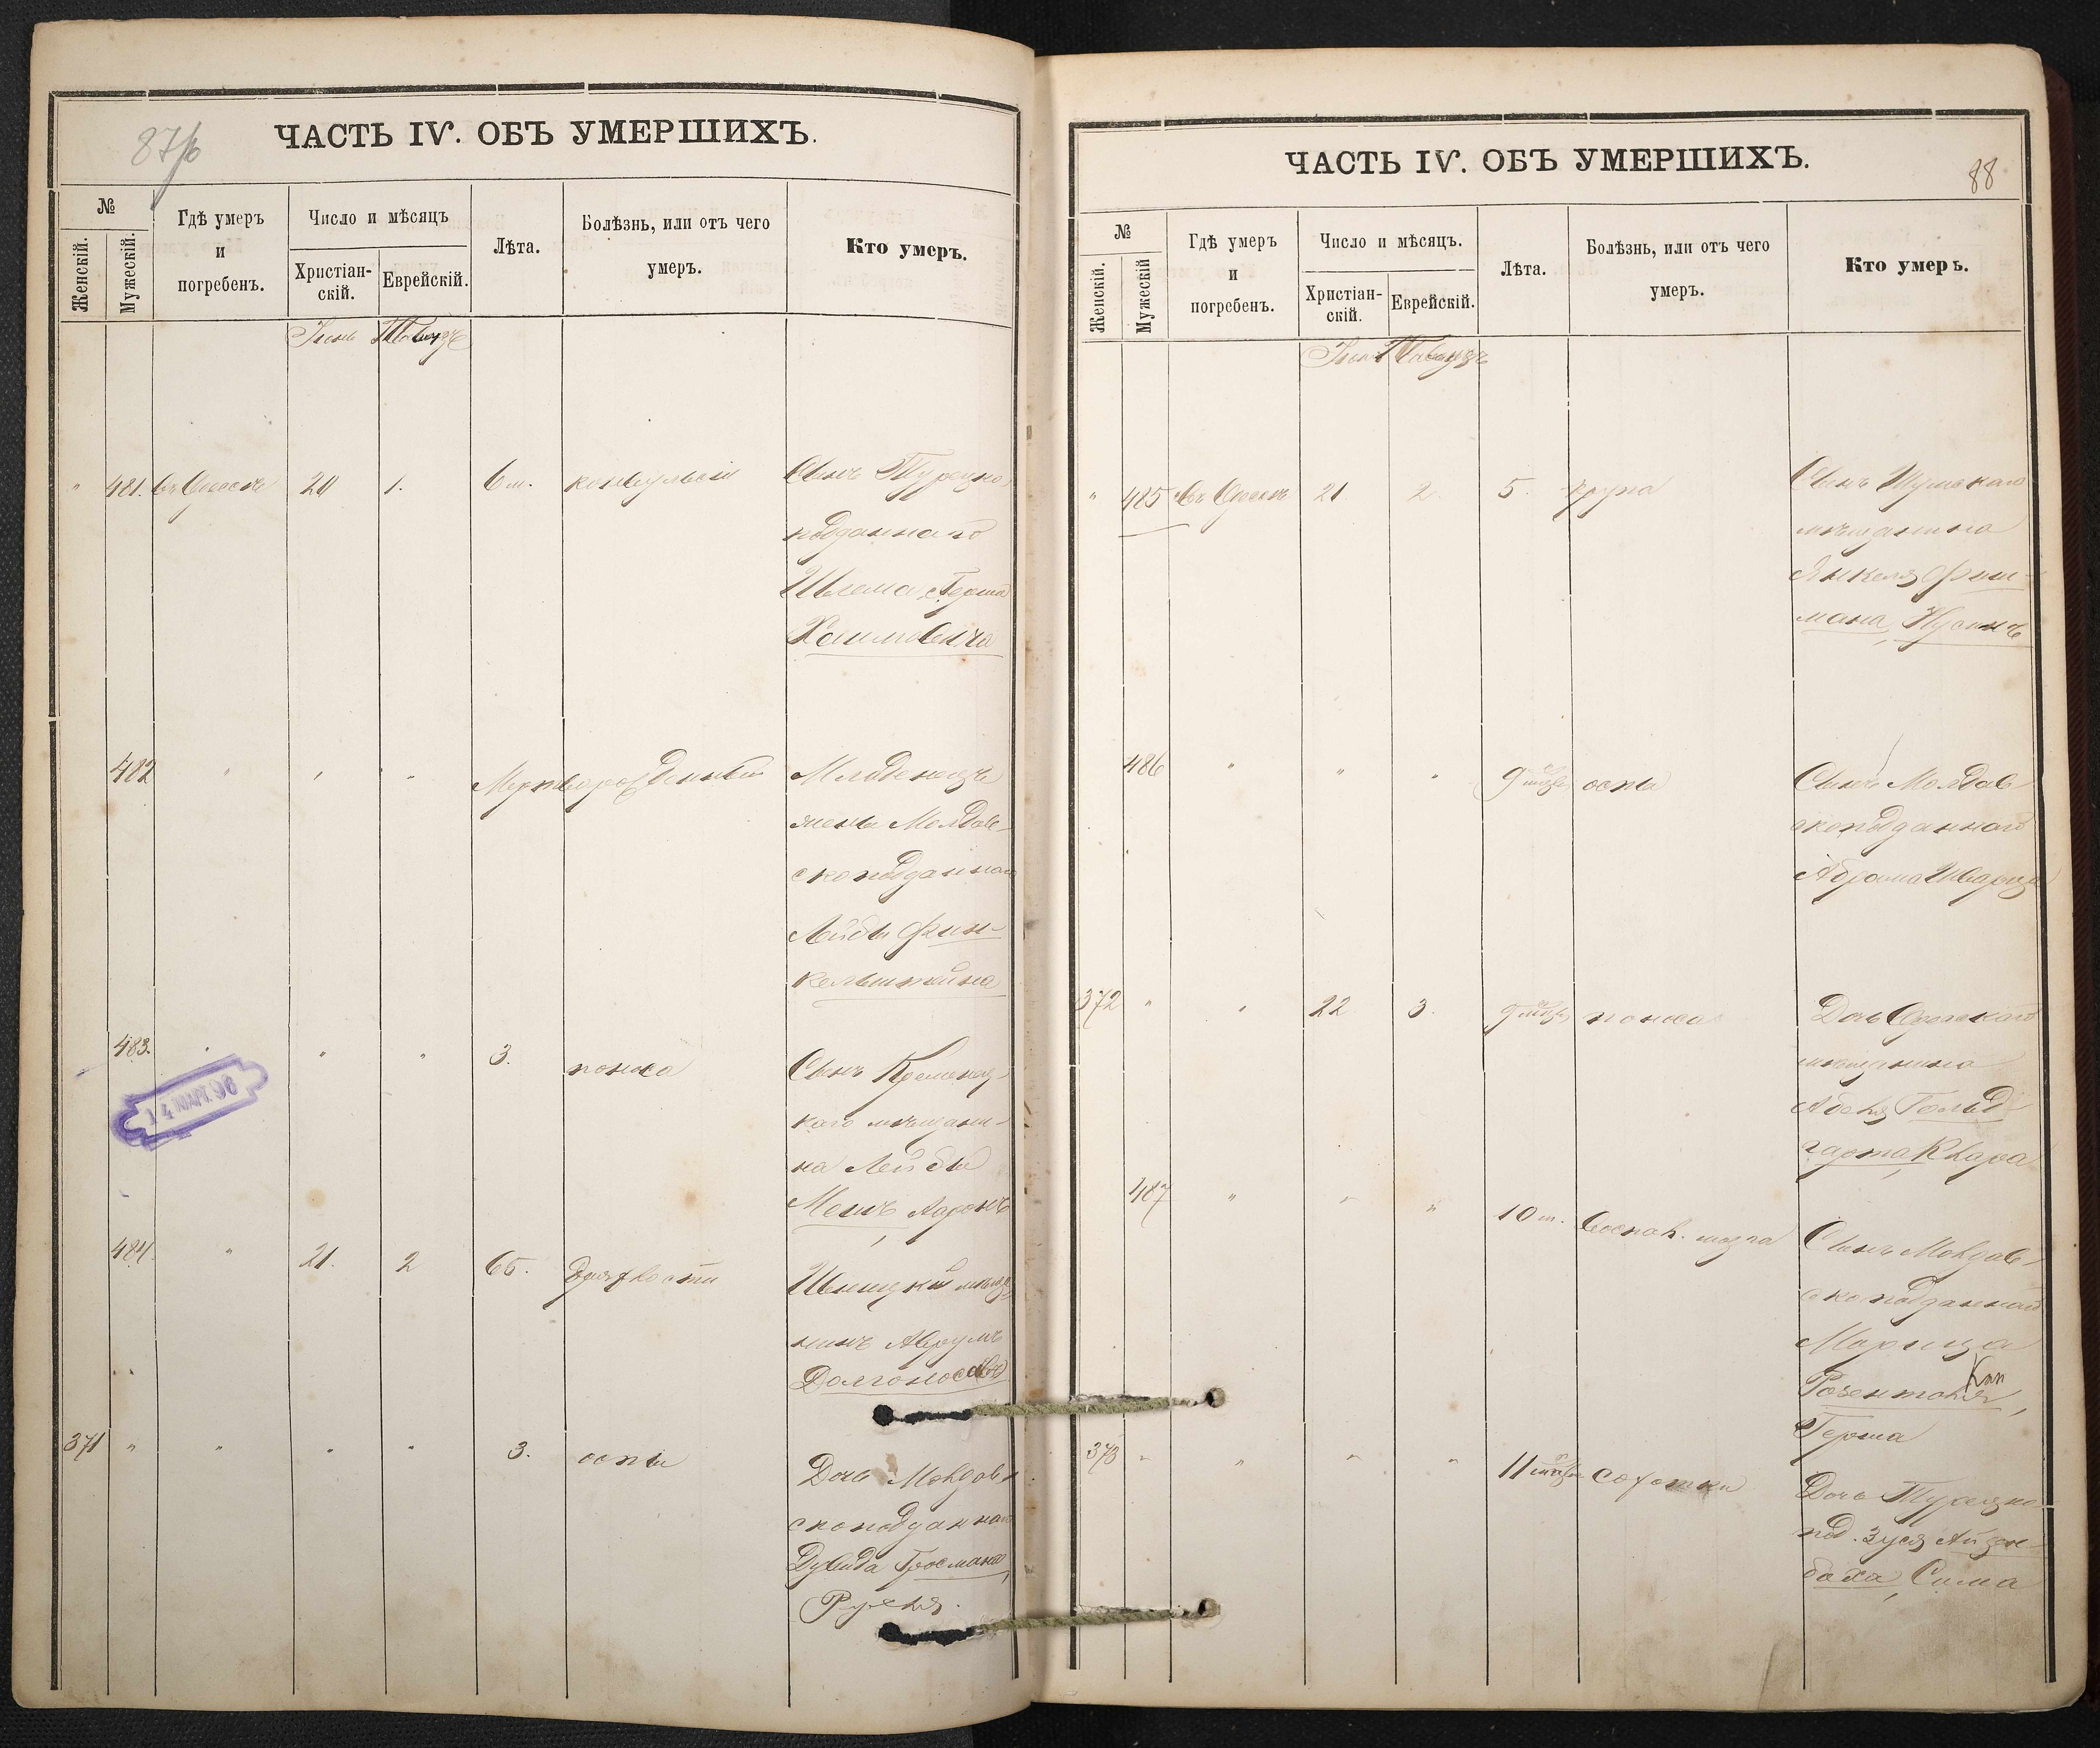 87/б
ЧАСТЬ IV. ОБЪ УМЕРШИХЪ.
№
Женскій.
Мужескій.
Гдѣ умеръ
и
погребенъ.
Число и мѣсяцъ
Христіан-
скій.
Еврейскій.
Лѣта.
Болѣзнь, или отъ чего
умеръ.
Кто умеръ.
481. въ Одессѣ 20 1. 6 м. конвульсіи Сынъ Турецко
подданнаго
Шлема Герша
Хаимовича
482 " " " Мертворожденный Младенецъ
жены Молдав-
скоподданнаго
Лейбы Фин-
кельштейна
483. " " " 3. поноса Сынъ Кременец-
каго мѣщани-
на Лейбы
Ааронъ
484. " 21. 2 65. дряхлости
нинъ Аврумъ
Долгоносовъ
371 " " " " 3. оспы Дочь Молдав-
скоподданнаго
Дувида Гросмана,
Рухля.
14 МАР. 96
ЧАСТЬ IV. ОБЪ УМЕРШИХЪ.
88
№
Женскій.
Мужескій
Гдѣ умеръ
и
погребенъ.
Число и мѣсяцъ.
Христіан-
скій.
Еврейскій.
Лѣта.
Болѣзнь, или отъ чего
умеръ.
Кто умеръ.
" 485 въ Одессѣ 21. 2. 5. крупа Сынъ
мѣщанина
Янкеля Фиш-
мана, Нусинъ
486 " " " 9 оспы Сынъ Молдав
скоподданнаго
Абрама Шварца
372 " " 22 3. 9 поноса Дочь Одесскаго
мѣщанина
Гольд-
гарта, Клара
487 " " " 10 м. воспал. мозга Сынъ Молдав-
скоподданнаго
Морица
Розенталя,
Герша
373 " " " " 11 сухотки Дочь Турецко
под. Зуся Айзен-
баха, Сима